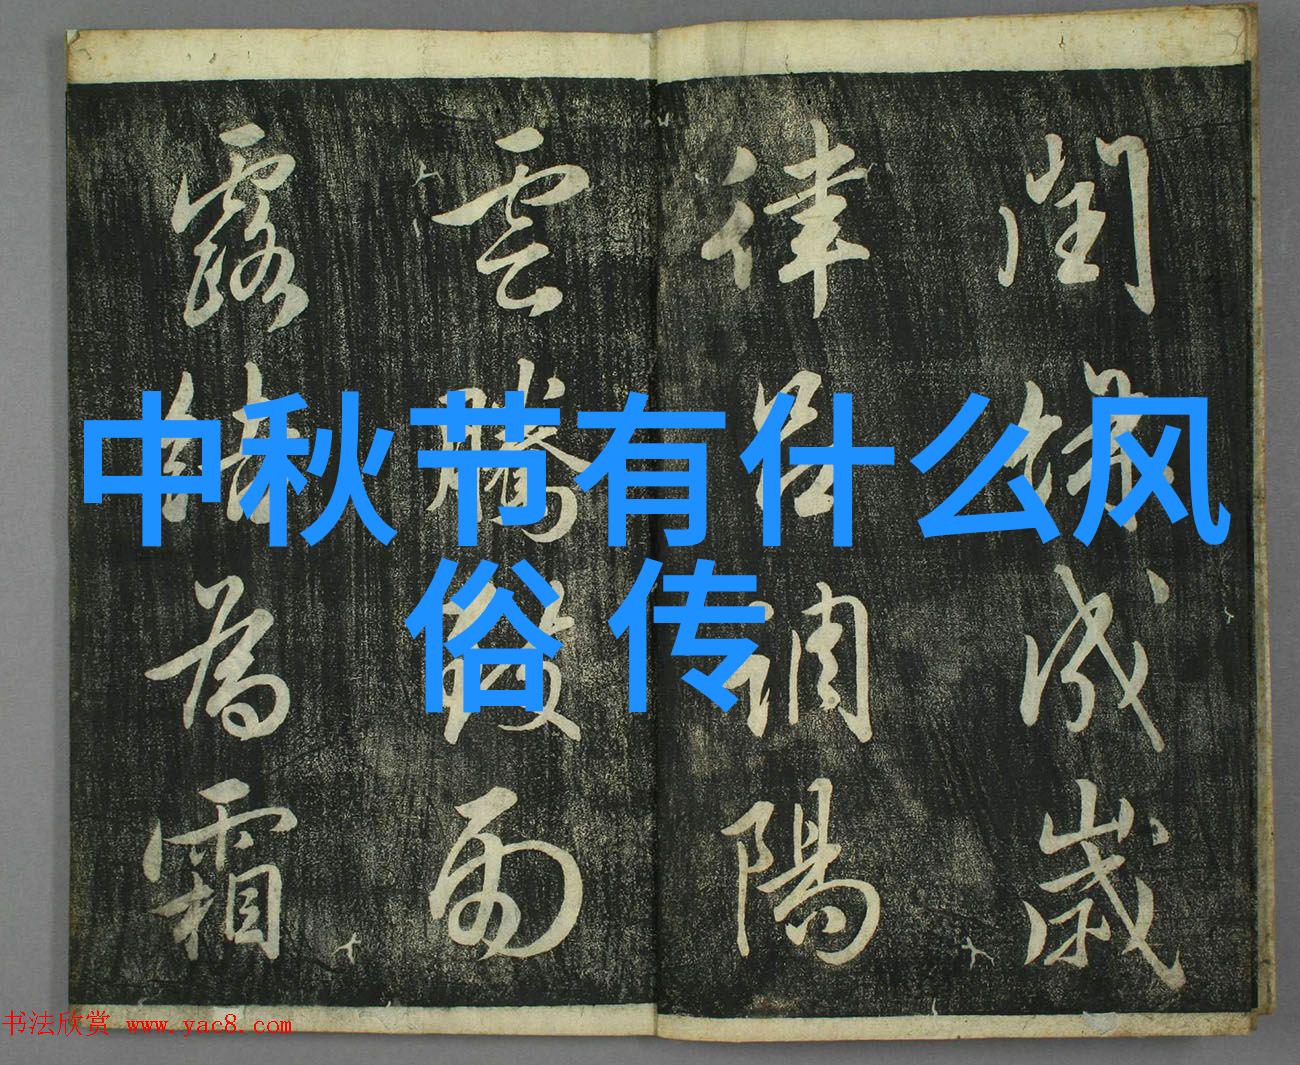 中秋节有什么风
俗传
閏餘成歲
律呂調陽
雲騰致雨
露結為霜
书法欣赏 www.yac8.com